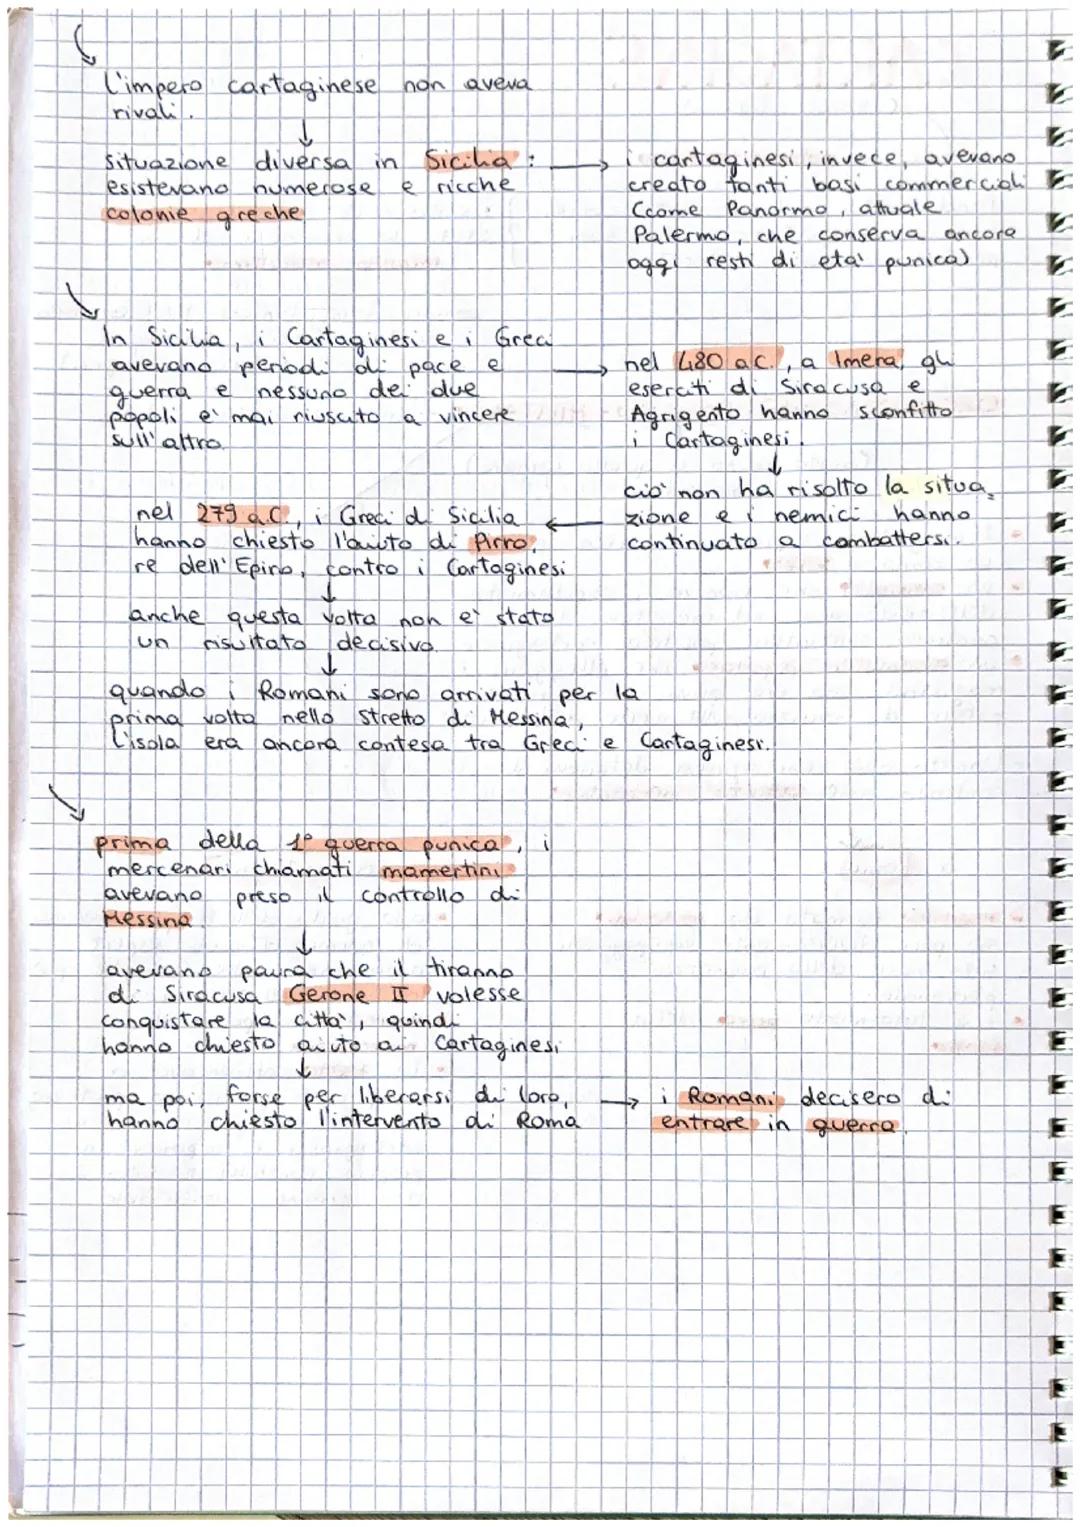 L'impero cartaginese non aveva
rivali.
situazione diversa in Sicilia:
esistevano numerose e ricche
colonie greche
i cartaginesi, invece, avevano
creato tanti basi commerciali
(come Panormo, attuale
Palermo, che conserva ancora
oggi resti di eta' punica)
In Sicilia, i Cartaginesi e i Greci
avevano periodi di pace e
guerra e nessuno dei due
popoli e' mai riuscito a vincere
sull'altro.
nel 480 a.C., a Imera, gli
eserciti di Siracusa e
Agrigento hanno sconfitto
i Cartaginesi.
ciò non ha risolto la situa_
zione e i nemici hanno
continuato a combattersi.
nel 279 a.C., i Greci di Sicilia
hanno chiesto l'aiuto di Pirro,
re dell'Epiro, contro i Cartaginesi
anche questa volta non è stato
un risultato decisivo.
quando i Romani sono arrivati per la
prima volta nello stretto di Messina,
l'isola era ancora contesa tra Greci e Cartaginesi.
prima della 1° guerra punica, i
mercenari chiamati mamertini
avevano preso il controllo di
Messina.
avevano paura che il tiranno
di Siracusa Gerone II volesse
conquistare la citta', quindi
hanno chiesto aiuto ai Cartaginesi
ma poi, forse per liberarsi di loro,
hanno chiesto l'intervento di Roma
i Romani decisero di
entrare in guerra.